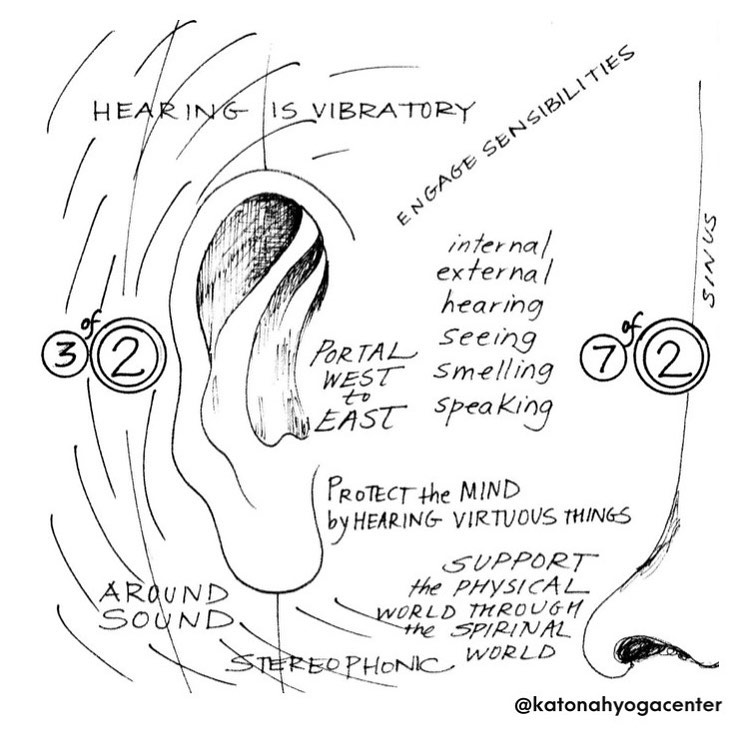 HEARING IS VIBRATORY
ENGAGE SENSIBILITIES
internal
external
hearing
seeing
smelling
speaking
SINUS
3 of 2
7 of 2
PORTAL
WEST
to
EAST
PROTECT the MIND
by HEARING VIRTUOUS THINGS
SUPPORT
the PHYSICAL
WORLD THROUGH
the SPIRINAL
WORLD
AROUND
SOUND
STEREOPHONIC
@katonahyogacenter